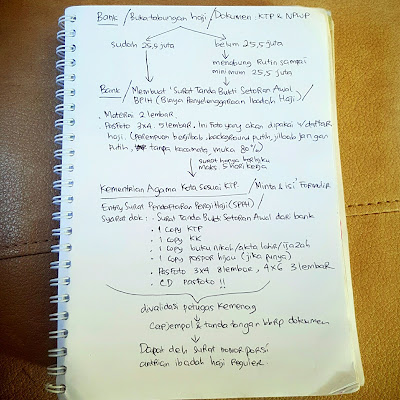 Bank / Buka tabungan haji / Dokumen KTP & NPWP
sudah 25,5 juta
belum 25,5 juta
menabung Rutin sampai
minimum 25,5 juta
Bank / Membuat 'Surat Tanda Bukti Setoran Awal
BPIH (Biaya Penyelenggaraan Ibadah Haji)'
. Materai 2 lembar.
. Pasfoto 3x4. 5 lembar. Ini Foto yang akan dipakai u/ daftar
haji. (perempuan berjilbab, background putih, jilbab jangan
putih, tanpa kacamata, muka 80%)
surat hanya berlaku
maks. 5 hari kerja
Kementrian Agama Kota Sesuai KTP / Minta & isi 'Formulir
Entry Surat Pendaftaran Pergi Haji (SPPH) /
Syarat dok : - Surat Tanda Bukti Setoran Awal dari bank
- 1 copy KTP
- 1 copy KK
- 1 copy buku nikah/akta lahir/ijazah
- 1 copy paspor hijau (jika punya)
- Pasfoto 3x4 8 lembar, 4x6 3 lembar
- CD pasfoto !!
divalidasi petugas Kemenag
Cap jempol & tanda tangan bbrp dokumen
Dapat deh surat nomor porsi
antrian ibadah haji reguler.